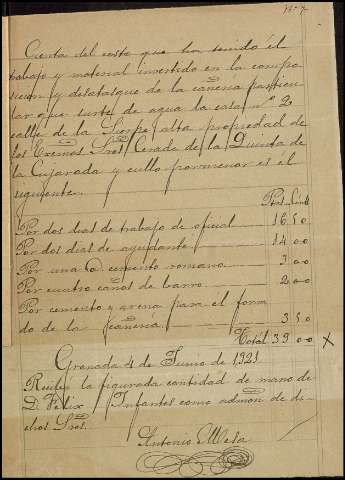 Nº 7
Cuenta del coste que ha tenido el
trabajo y material invertido en la compo
sicion y desatasque de la cañeria particu
lar que surte de agua la casa nº 2
calle de la Sierpe alta propiedad de
los Exemos Sres Conde de la Quinta de
la Enjarada y cullo pormenor es el
siguiente.
Ptas Cent
Por dos dias de trabajo de oficial 16 50
Por dos dias de ayudante 14 00
Por una @ cemento romano 3 00
Por cuatro caños de barro 2 00
Por cemento y arena para el forra
do de la cañeria 3 50
Total 39 00 X
Granada 4 de Junio de 1921
Recibí la figurada cantidad de mano de
D. Felix Infantes como admon de di-
chos Sres.
Antonio Mesa